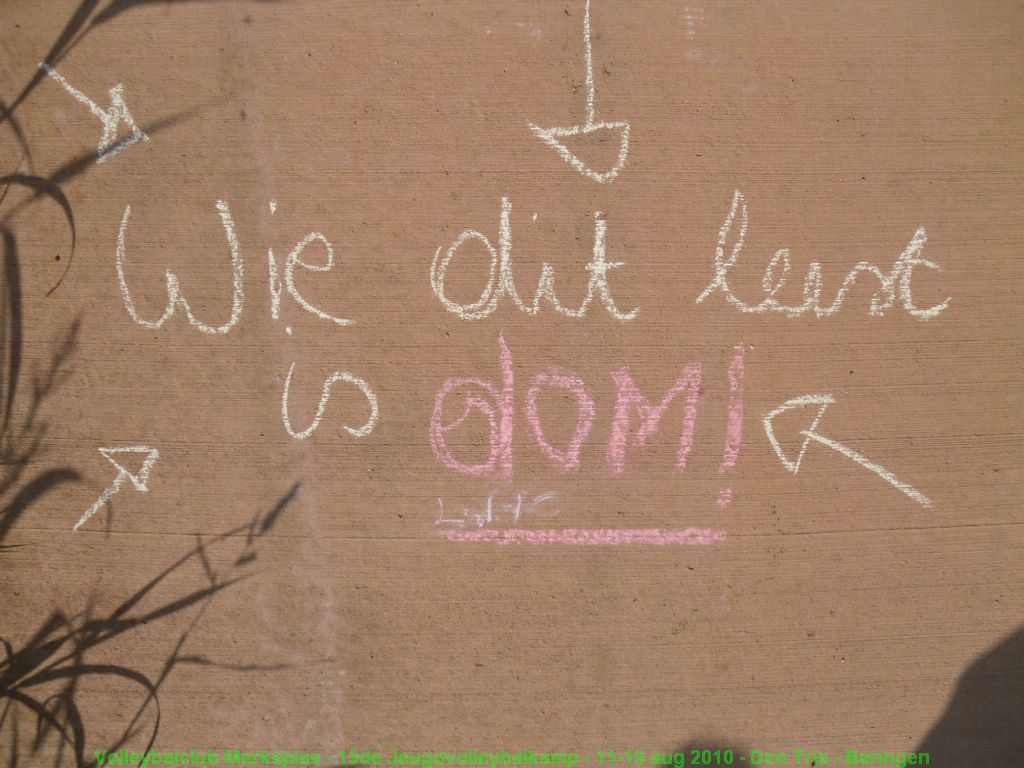 Wie dit leest
is dom!
Volleybalclub Merksplas - 15de Jeugdvolleybalkamp - 11-16 aug 2010 - Den Tris - Beringen